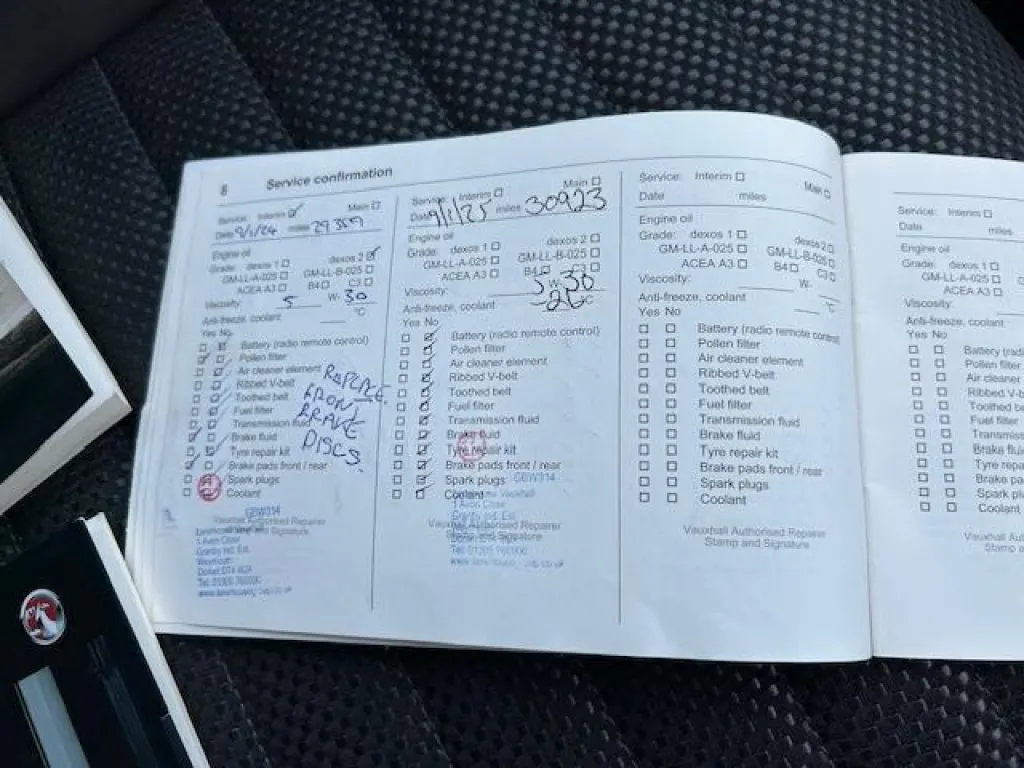 8 Service confirmation
Service: Interim Main
Date 9/1/24 miles 29359
Engine oil
Grade: dexos 1 dexos 2
GM-LL-A-025 GM-LL-B-025
ACEA A3 B4 C3
Viscosity: 5 W- 30
Anti-freeze, coolant °C
Yes No
Battery (radio remote control)
Pollen filter
Air cleaner element
Ribbed V-belt
Toothed belt
Fuel filter
Transmission fluid
Brake fluid
Tyre repair kit
Brake pads front / rear
Spark plugs
Coolant
REPLACE
FRONT
BRAKE
DISCS.
GBW314
Vauxhall Authorised Repairer
Stamp and Signature
1 Avon Close
Granby Ind. Est.
Weymouth
Dorset DT4 9UX
Tel: 01305 760000
Service: Interim Main
Date 9/1/25 miles 30923
Engine oil
Grade: dexos 1 dexos 2
GM-LL-A-025 GM-LL-B-025
ACEA A3 B4 C3
Viscosity: 5 W- 30
Anti-freeze, coolant -26 °C
Yes No
Battery (radio remote control)
Pollen filter
Air cleaner element
Ribbed V-belt
Toothed belt
Fuel filter
Transmission fluid
Brake fluid
Tyre repair kit
Brake pads front / rear
Spark plugs GBW314
Coolant Vauxhall
1 Avon Close
Granby Ind. Est.
Vauxhall Authorised Repairer
Stamp and Signature
Tel: 01305 760000
Service: Interim Main
Date miles
Engine oil
Grade: dexos 1 dexos 2
GM-LL-A-025 GM-LL-B-025
ACEA A3 B4 C3
Viscosity: W-
Anti-freeze, coolant °C
Yes No
Battery (radio remote control)
Pollen filter
Air cleaner element
Ribbed V-belt
Toothed belt
Fuel filter
Transmission fluid
Brake fluid
Tyre repair kit
Brake pads front / rear
Spark plugs
Coolant
Vauxhall Authorised Repairer
Stamp and Signature
Service: Interim
Date miles
Engine oil
Grade: dexos 1
GM-LL-A-025
ACEA A3
Viscosity:
Anti-freeze, coolant
Yes No
Battery (radio
Pollen filter
Air cleaner
Ribbed V-belt
Toothed be
Fuel filter
Transmiss
Brake fluid
Tyre repai
Brake pad
Spark plu
Coolant
Vauxhall Au
Stamp a